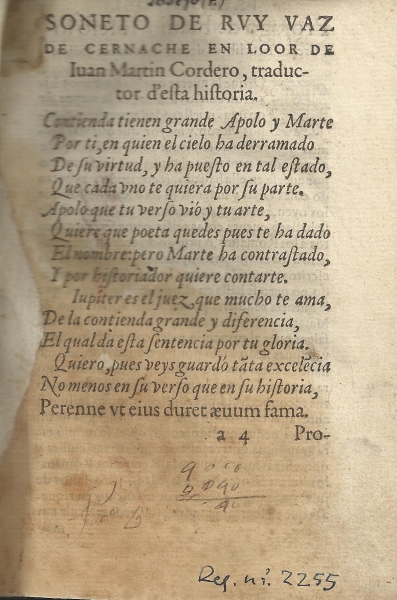 SONETO DE RVY VAZ
DE CERNACHE EN LOOR DE
Iuan Martin Cordero, traduc-
tor d'esta historia.
Contienda tienen grande Apolo y Marte
Por ti, en quien el cielo ha derramado
De su virtud, y ha puesto en tal estado,
Que cada vno te quiera por su parte.
Apolo que tu verso vió y tu arte,
Quiere que poeta quedes pues te ha dado
El nombre: pero Marte ha contrastado,
Y por historiador quiere contarte.
Iupiter es el juez, que mucho te ama,
De la contienda grande y diferencia,
El qual da esta sentencia por tu gloria.
Quiero, pues veys guardó tāta excelēcia
No menos en su verso que en su historia,
Perenne vt eius duret æuum fama.
a 4 Pro-
Reg. nı. 2255